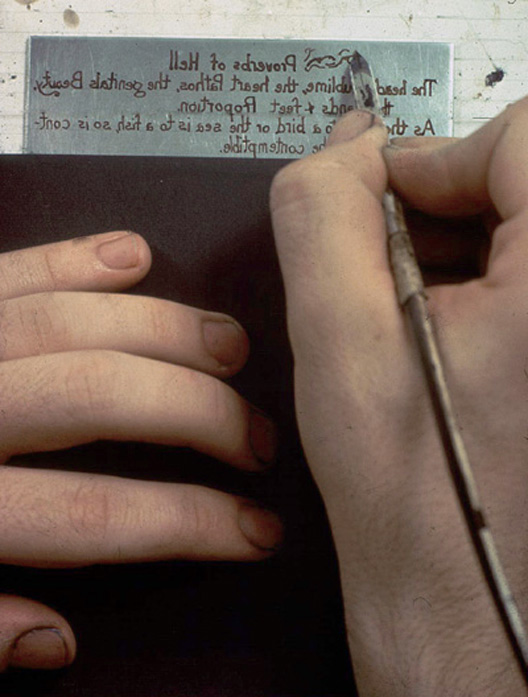 Proverbs of Hell
The head Sublime, the heart Pathos, the genitals Beauty,
the hands & feet Proportion.
As the to a bird or the sea is to a fish, so is cont-
the contemptible.